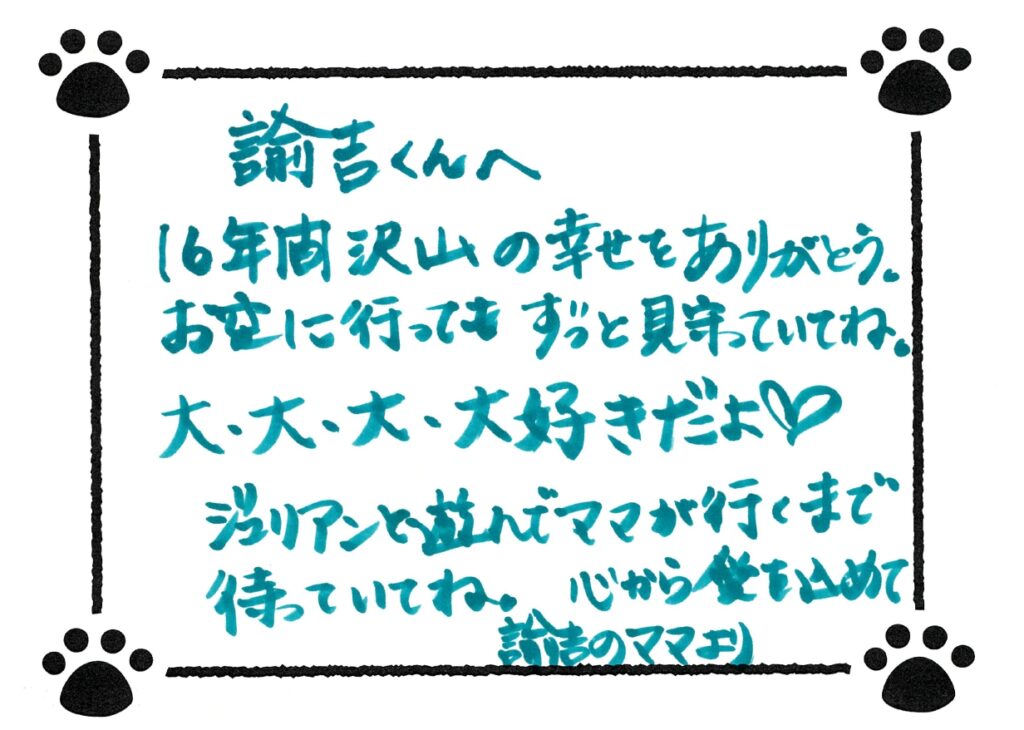 諭吉くんへ
16年間沢山の幸せをありがとう。
お空に行っても ずっと見守っていてね。
大、大、大、大好きだよ♡
ジュリアンと遊んでママが行くまで
待っていてね。 心から愛を込めて
諭吉のママより